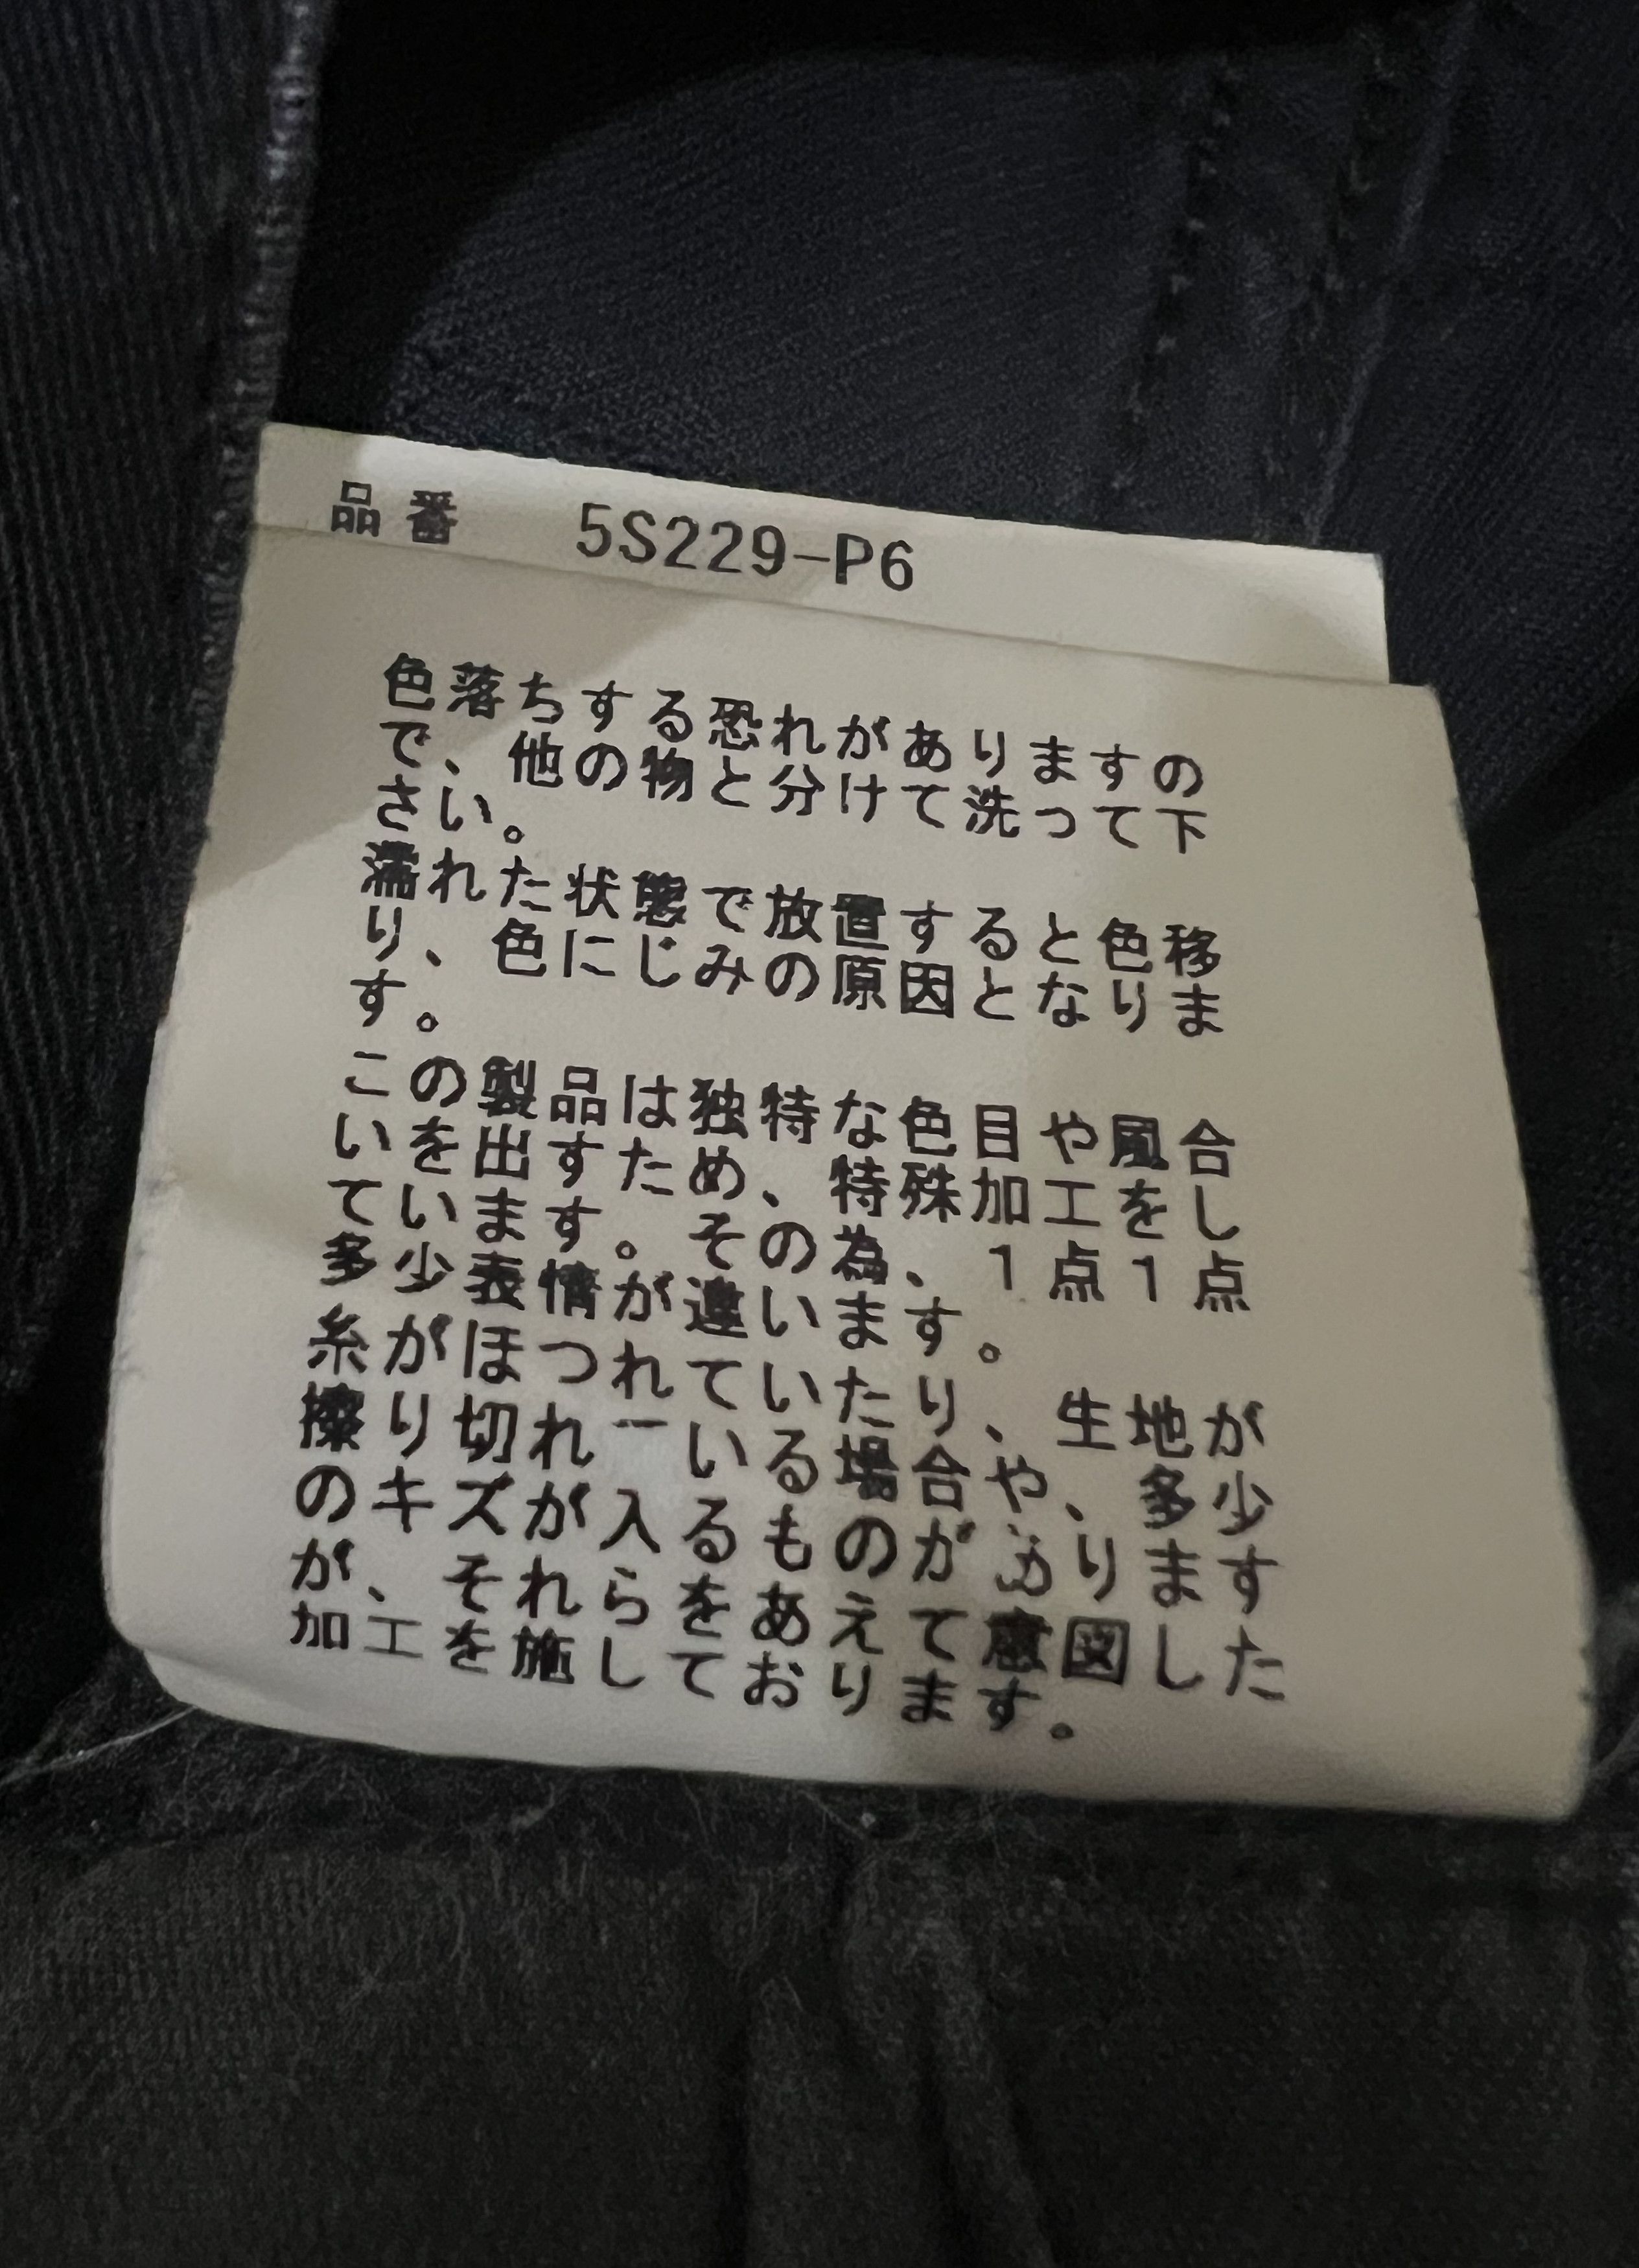 品番 5S229-P6
色落ちする恐れがありますの
で、他の物と分けて洗って下
さい。
濡れた状態で放置すると色移
り、色にじみの原因となりま
す。
この製品は独特な色目や風合
いを出すため、特殊加工をし
ています。その為、1点1点
多少表情が違います。
糸がほつれていたり、生地が
擦り切れているる場合や、多少
のキズが入るものがあります
が、それらをあえて意図した
加工を施しております。